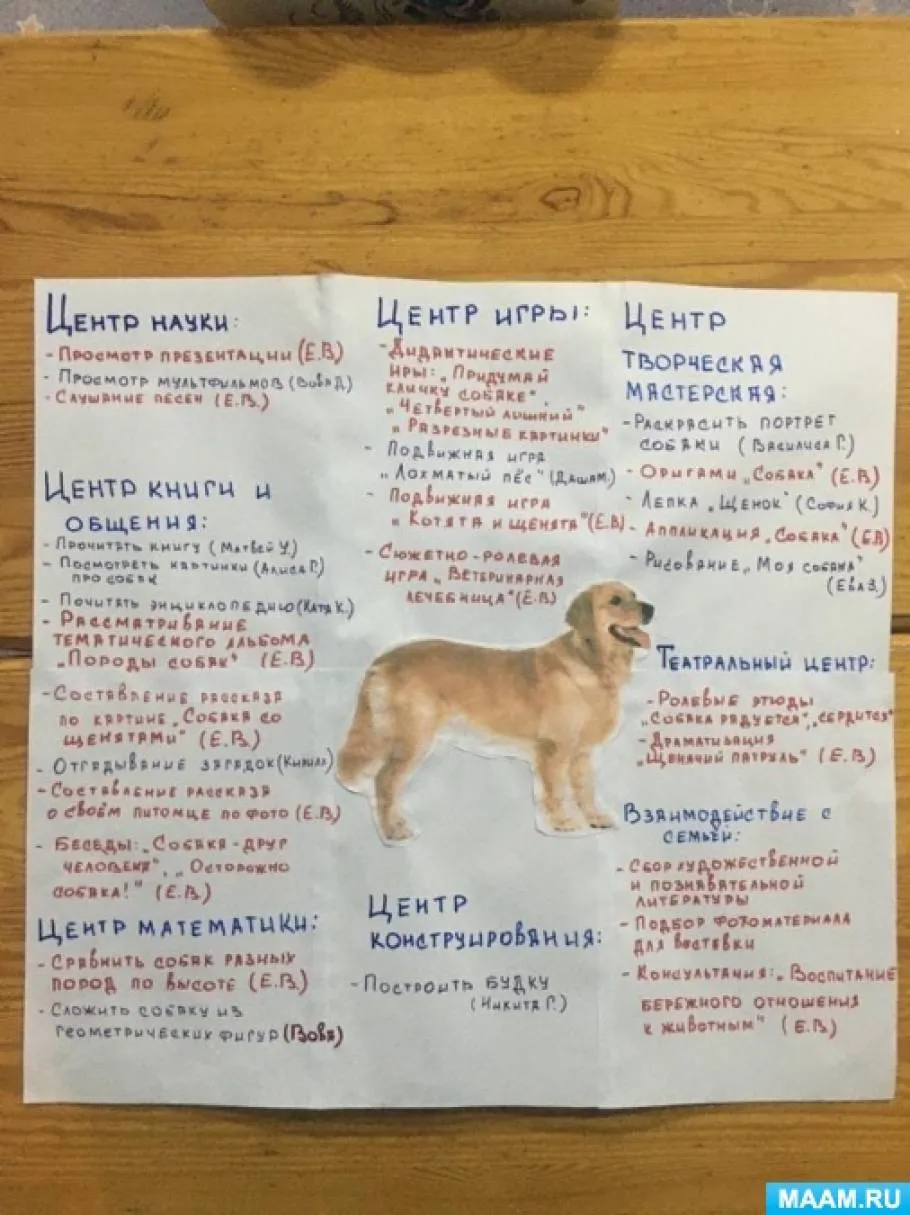 Центр науки:
- Просмотр презентации (Е.В.)
- Просмотр мультфильмов (Вова Д.)
- Слушание песен (Е.В.)
Центр книги и
общения:
- Прочитать книгу (Матвей У.)
- Посмотреть картинки (Алиса Г.)
про собак
- Почитать энциклопедию (Катя К.)
- Рассматривание
тематического альбома
„Породы собак" (Е.В.)
- Составление рассказа
по картине „Собака со
щенятами" (Е.В.)
- Отгадывание загадок (Кирилл)
- Составление рассказа
о своём питомце по фото (Е.В.)
- Беседы: „Собака - друг
человека", „Осторожно
собака!" (Е.В.)
Центр математики:
- Сравнить собак разных
пород по высоте (Е.В.)
- Сложить собаку из
геометрических фигур (Вова)
Центр игры:
- Дидактические
игры: „Придумай
кличку собаке",
„Четвертый лишний"
„Разрезные картинки"
- Подвижная игра
„Лохматый пёс" (Даша М.)
- Подвижная игра
„Котята и щенята" (Е.В)
- Сюжетно-ролевая
игра „Ветеринарная
лечебница" (Е.В)
Центр
конструирования:
- Построить будку
(Никита Г.)
Центр
творческая
мастерская:
- Раскрасить портрет
собаки (Василиса Г.)
- Оригами „Собака" (Е.В)
- Лепка „Щенок" (София К.)
- Аппликация „Собака" (Е.В)
- Рисование „Моя собака"
(Ева З.)
Театральный центр:
- Ролевые этюды
„Собака радуется", „сердится"
- Драматизация
„Щенячий патруль" (Е.В.)
Взаимодействие с
семьей:
- Сбор художественной
и познавательной
литературы
- Подбор фотоматериала
для выставки
- Консультация: „Воспитание
бережного отношения
к животным" (Е.В.)
MAAM.RU